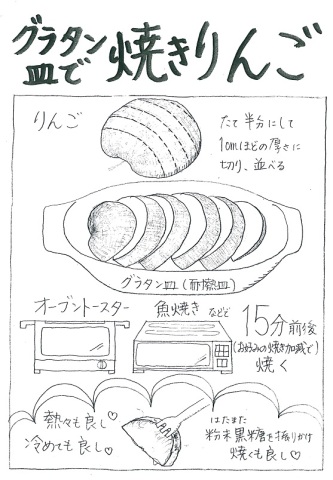 グラタン
皿で焼きりんご
りんご
たて半分にして
1cmほどの厚さに
切り、並べる
グラタン皿(耐熱皿)
オーブントースター
魚焼きなどで
15分前後
(お好みの焼き加減で)
焼く
熱々も良し♡
冷めても良し♡
はたまた
粉末黒糖を振りかけ
焼くも良し♡